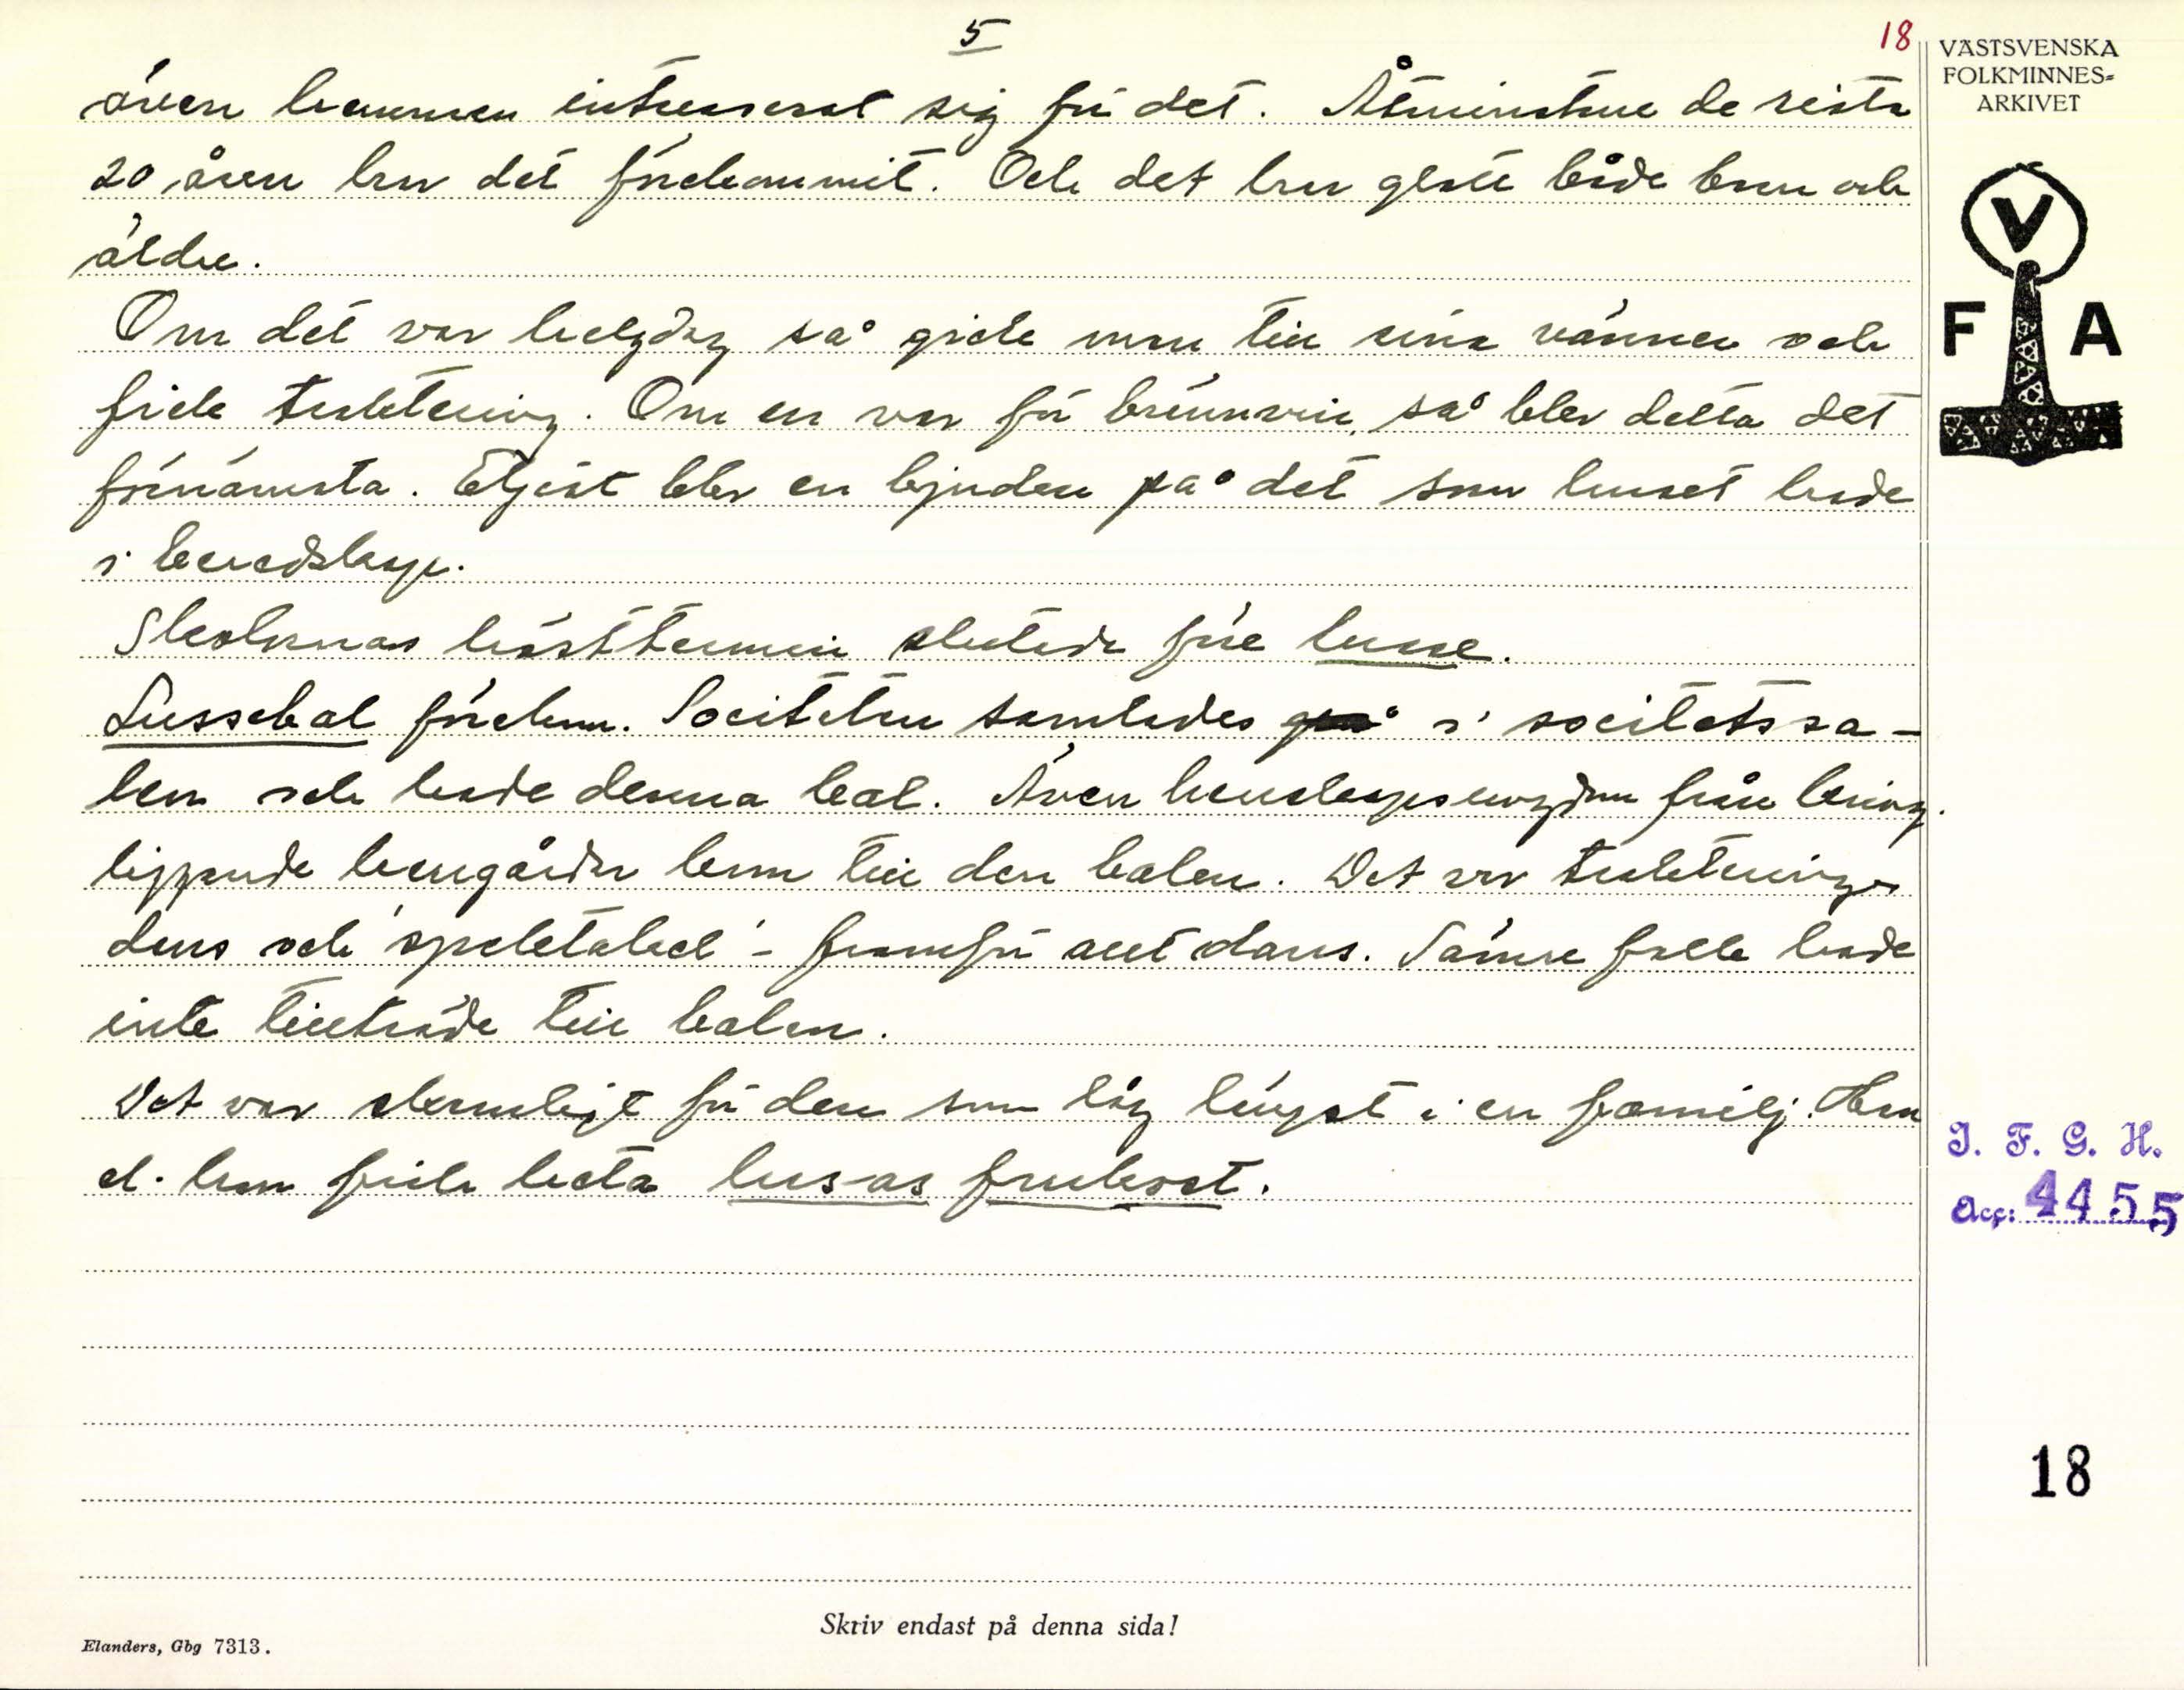 5
18
även kommun intresserat sig för det. Åtminstone de sista
20 åren har det förekommit. Och det har glatt både barn och
äldre.
Om det var helgdag så gick man till sina vänner och
fick traktering. Om en var för brännvin, så blev detta det
förnämsta. Eljest blev en bjuden på det som huset hade
i beredskap.
Skolornas hösttermin slutade före lusse.
Lussebal förekom. Societeten samlades i societetssa-
len och hade denna bal. Även herrskapsungdom från kring
liggande herrgårdar kom till den balen. Det var traktering
dans och spektakel - framför allt dans. Sämre folk hade
inte tillträde till balen.
Det var skamligt för den som låg längst i en familj. Han
el. hon fick heta lusas frukost.
VÄSTSVENSKA
FOLKMINNES-
ARKIVET
V
F A
I. F. G. H.
Acc: 4455
18
Skriv endast på denna sida!
Elanders, Gbg 7313.